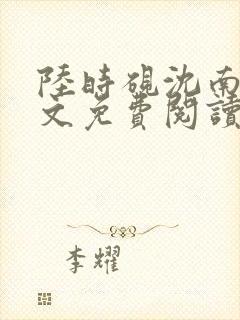 陸時硯沈南
文免費閱讀
李耀